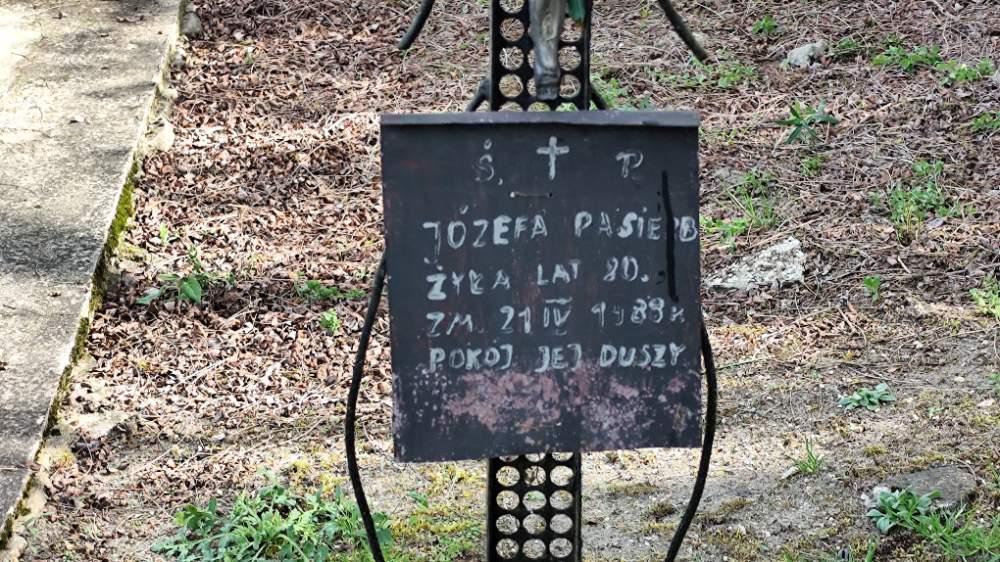 Ś. † P
JÓZEFA PASIERB
ŻYŁA LAT 80.
ZM. 21 IV 1989 R
POKÓJ JEJ DUSZY